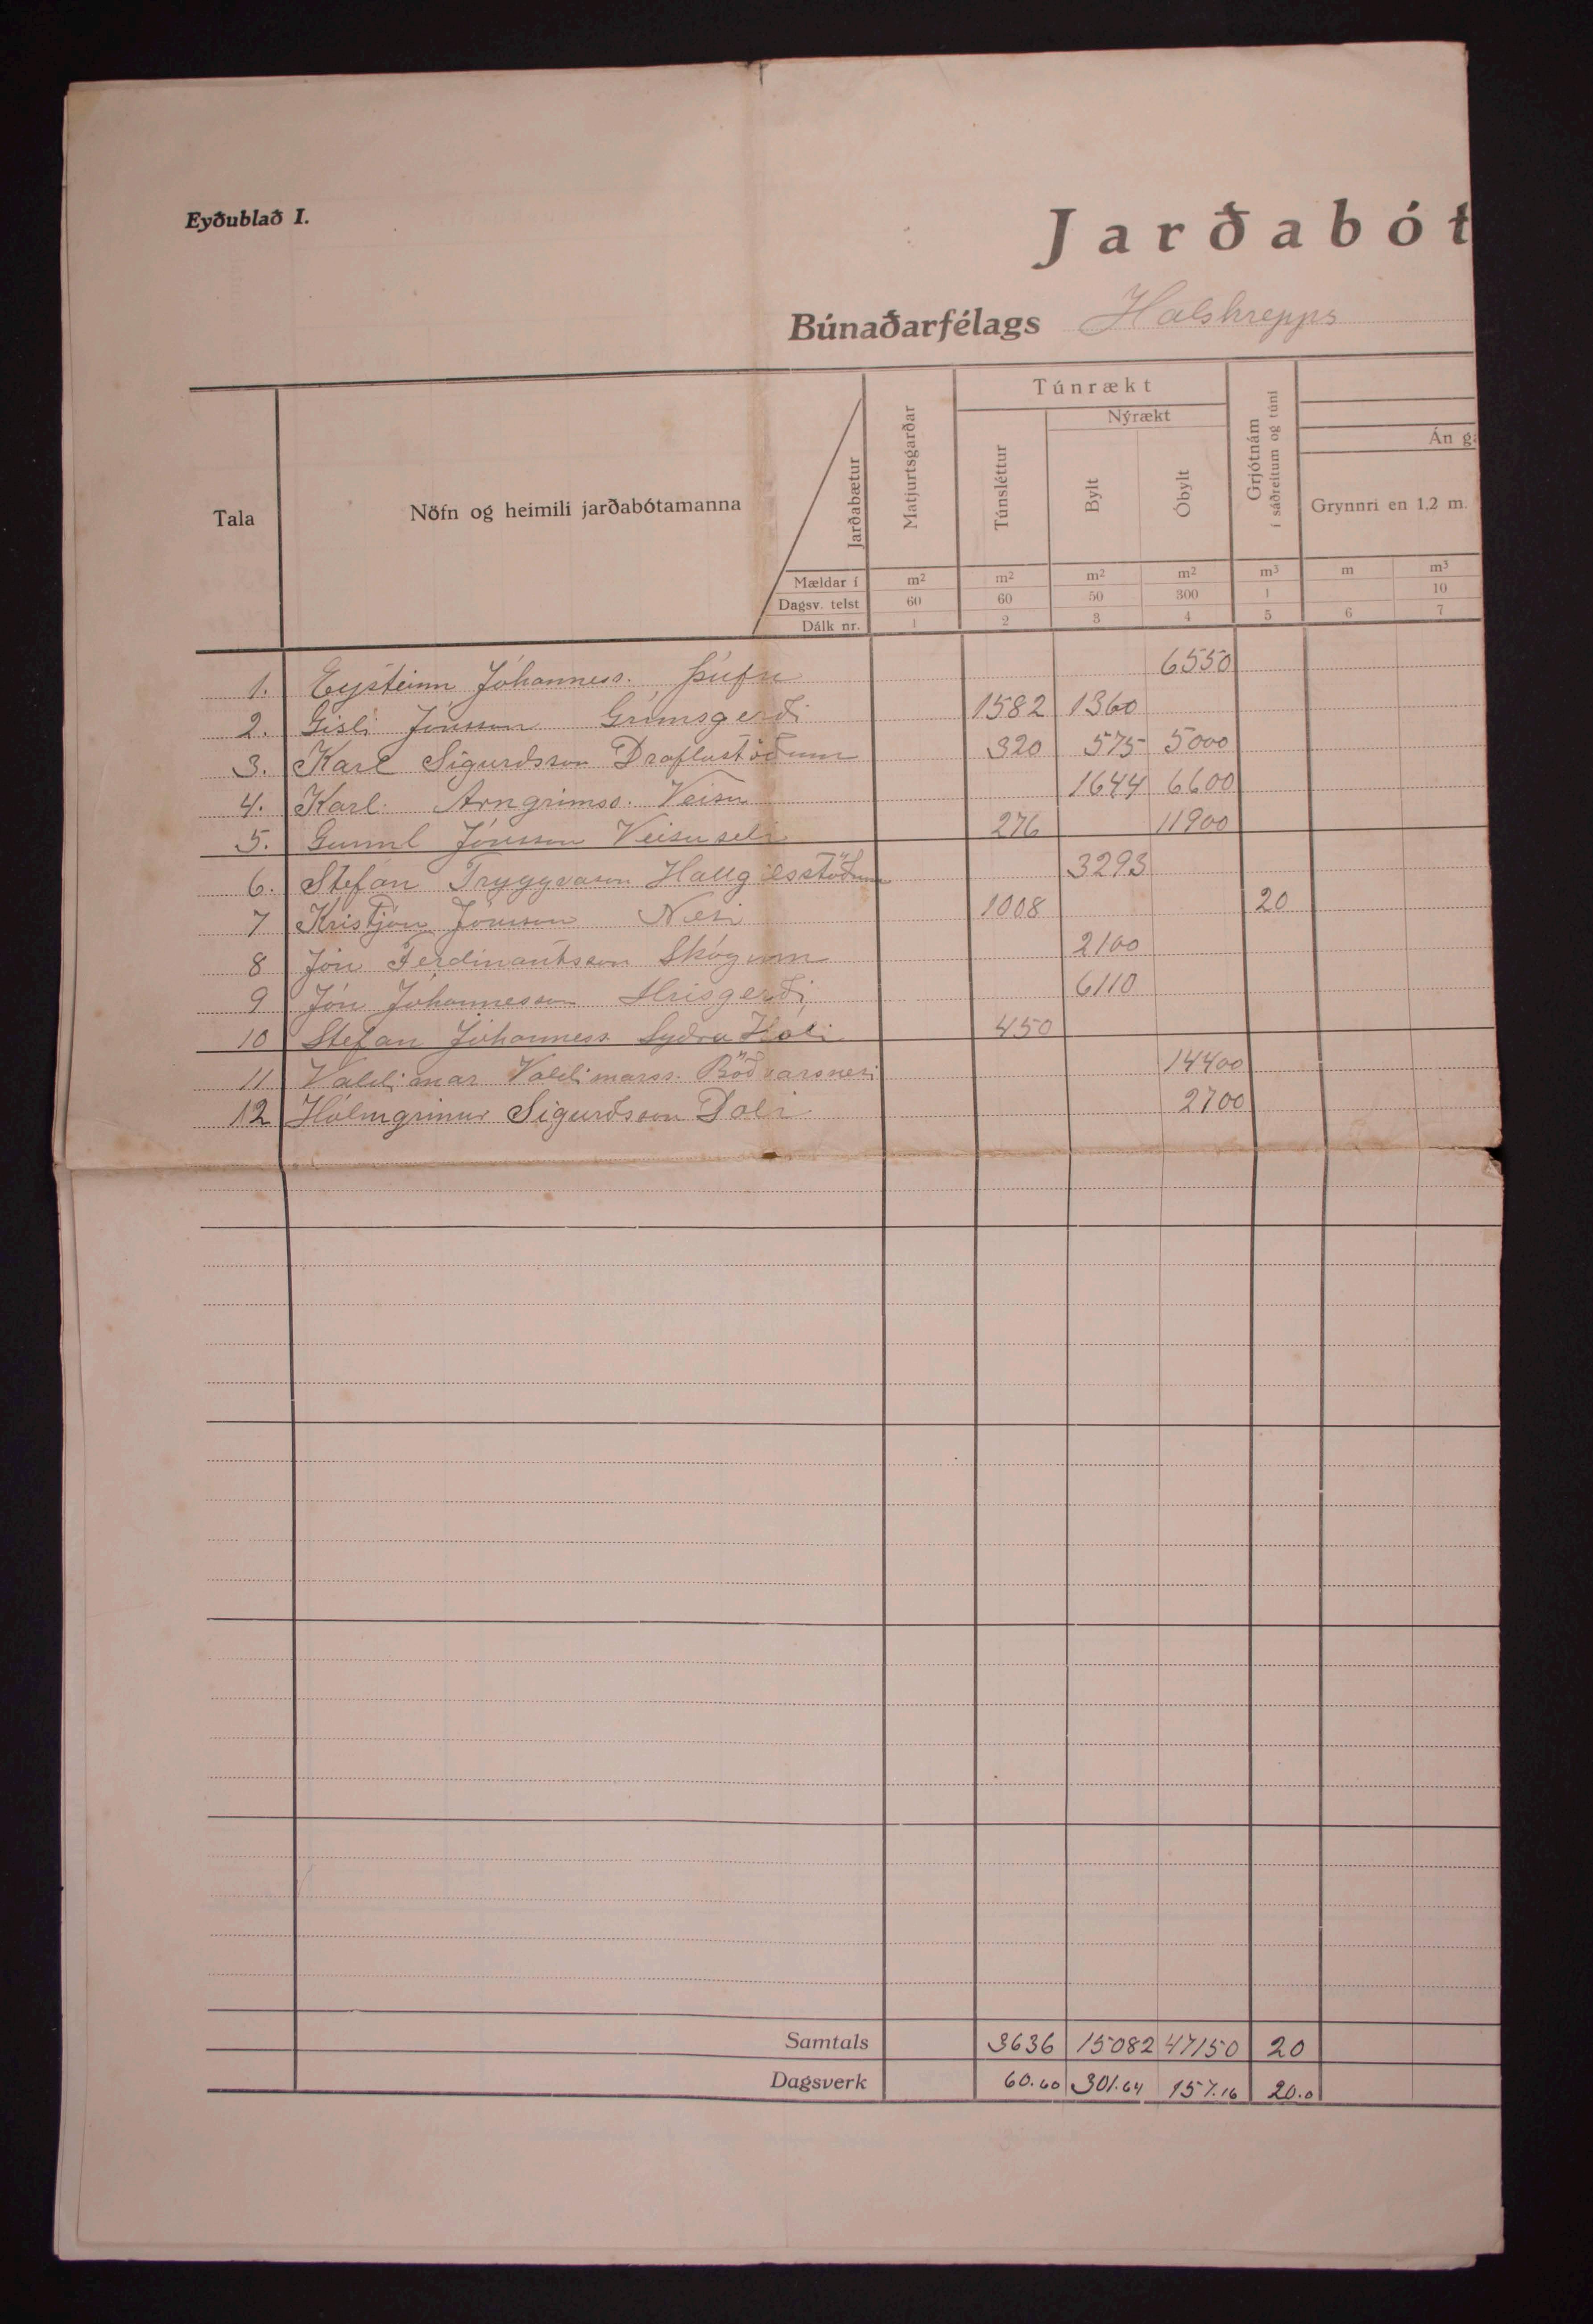 Eyðublað I.
Jarðabót
Búnaðarfélags Halshrepps
Tala
Nöfn og heimili jarðabótamanna
Jarðabætur
Mældar í
Dagsv. telst
Dálk nr.
Matjurtsgarðar
m² 60 1
Túnrækt
Túnsléttur
m² 60 2
Nýrækt
Bylt
m² 50 3
Óbylt
m² 300 4
Grjótnám
í sáðreitum og túni
m³ 1 5
Án g
Grynnri en 1,2 m.
m 6
m³ 10 7
1. Eysteinn Jóhanness. Þúfu 6550
2. Gisli Jónsson Grímsgerði 1582 1360
3. Karl Sigurdsson Draflastöðum 320 575 5000
4. Karl Arngrimss. Veisu 1644 6600
5. Gunnl Jónsson Veisuseli 276 11900
6. Stefán Tryggvason Hallgilsstöðum 3293
7 Kristján Jónsson Nesi 1008 20
8 Jón Ferdinantsson Skógum 2100
9 Jón Jóhannesson Hrisgerði 6110
10 Stefan Jóhanness. Sydra Hóli 450
11 Valdimar Valdimarss. Böðvarsnesi 14400
12 Hólmgrimur Sigurðsson Dali 2700
Samtals 3636 15082 47150 20
Dagsverk 60.60 301.64 157.16 20.0